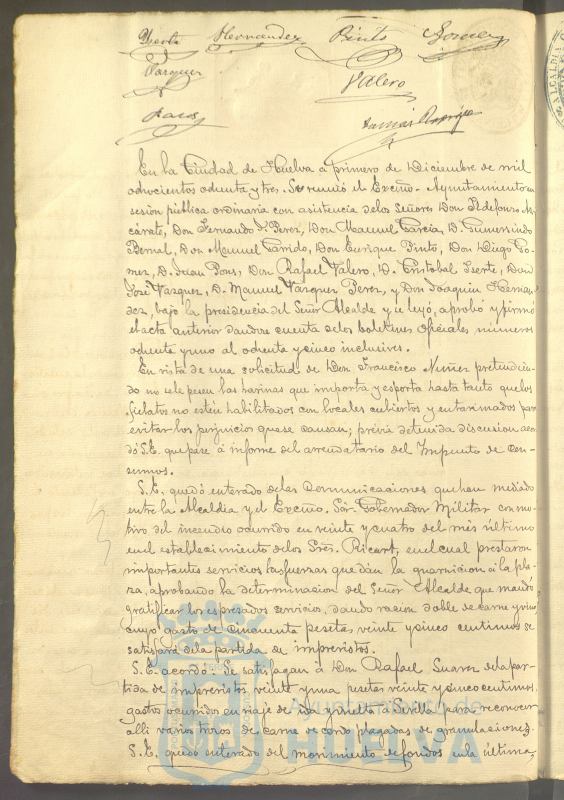 Yserte Hernandez Pinto Gomez
Vazquez Valero
Pons
En la Ciudad de Huelva a primero de Diciembre de mil
ochocientos ochenta y tres. Se reunió el Excmo. Ayuntamiento en
sesión pública ordinaria con asistencia delos Señores Don Ildefonso Az-
cárate, Don Fernando de Perez, Don Manuel Garcia, D. Gumersindo
Bernal, Don Manuel Garrido, Don Enrique Pinto, Don Diego Go-
mez, D. Juan Pons, Don Rafael Valero, D. Cristobal Yserte, Don
José Vazquez, D. Manuel Vazquez Perez, y Don Joaquin Hernan-
dez, bajo la presidencia del Señor Alcalde y se leyó, aprobó y firmó
el acta anterior dandose cuenta delos boletines oficiales números
ochenta y uno al ochenta y cinco inclusives.
En vista de una solicitud de Don Francisco Nuñez pretendien-
do no se le pesen las harinas que importa y esporta hasta tanto quelos
fielatos no estén habilitados con locales cubiertos y entarimados para
evitar los perjuicios que se causan; prévia detenida discusion acor-
dó S.E. que pase á informe del arrendatario del Impuesto de Con-
sumos.
S.E. quedó enterado delas Comunicaciones que han mediado
entre la Alcaldia y el Excmo. Sor. Gobernador Militar con mo-
tivo del incendio ocurrido en veinte y cuatro del més último
en el establecimiento delos Sres. Ricart, en el cual prestaron
importantes servicios las fuerzas que dan la guarnicion á la pla-
za, aprobando la determinacion del Señor Alcalde que mandó
gratificar los espresados servicios, dando racion doble de carne y vino
cuyo gasto de cincuenta pesetas veinte y cinco centimos se
satisfará dela partida de imprevistos.
S.E. acordó: Se satisfagan á Don Rafael Suarez dela par-
tida de imprevistos veinte y una pesetas veinte y cinco centimos,
gastos ocurridos en viaje de ida y vuelta á Sevilla para reconocer
alli varios trozos de carne de cerdo plagadas de granulaciones.
S.E. quedó enterado del movimiento de fondos en la última
Ayuntamiento de
HUELVA
ALCALDIA